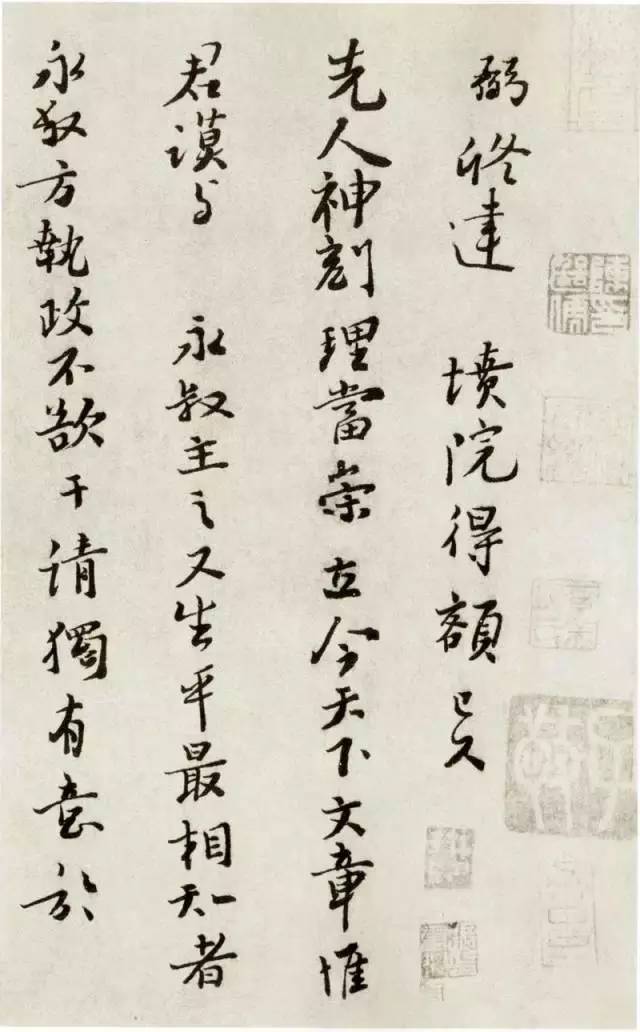 弼修建 墳院得額已久
先人神刻理當崇立今天下文章惟
君謨与 永叔主之又生平最相知者
永叔方執政不欲干请獨有意於